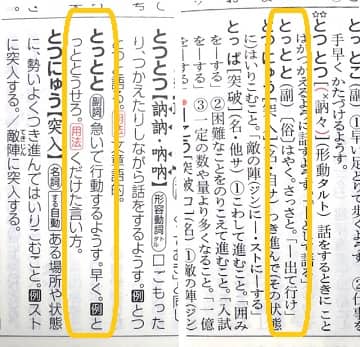 手早くかたづけるようす。
とつとつ【訥々】(形動タルト) 話をするときに こと
ばがつかえるように話すようす。「―と話す」
とっとと (副)〔俗〕はやく。さっさと。「―出て行け」
とつにゅう【突入】(名・自サ) つき進んでその状態
にはいりこむこと。「敵の陣(ジン)に―・ストに―する」
とっぱ【突破】(名・他サ) ①こわして進むこと。「囲み
を―する」 ②困難なことをのりこえて進むこと。「入試
を―する」 ③一定の数や量より多くなること。「一億
こう【突破口】(名) ①敵の陣(ジン
とつとつ【訥訥・吶吶】形容動詞タル 口ごもった
り、つかえたりしながら話をするようす。例とつ
とつと語る。用法文章語的。
とっとと 副詞 急いで行動するようす。早く。例と
っととうせろ。用法くだけた言い方。
とつにゅう【突入】名詞する自動 ある場所や状態
に、勢いよくつき進んではいりこむこと。例スト
に突入する。敵陣に突入する。